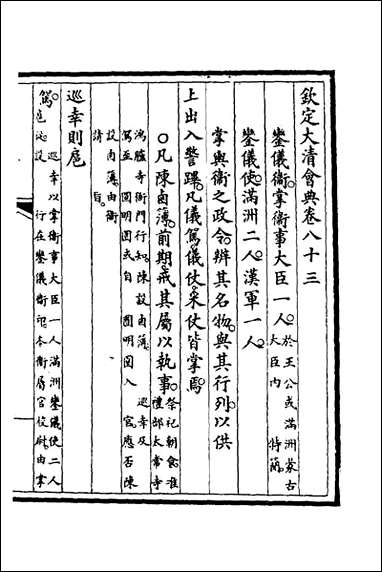 欽定大清會典卷八十三
鑾儀衛掌衛事大臣一人於王公或滿洲蒙古大臣內特簡
鑾儀使滿洲二人漢軍一人
掌輿衛之政令辨其名物與其行列以供
上出入警蹕凡儀駕儀仗采仗皆掌焉
○凡陳鹵薄前期戒其屬以執事祭祀朝會准禮部太常寺
鴻臚寺衙門行知陳設鹵薄巡幸及
駕並圓明園或自圓明園入宮應否陳
設鹵薄由衛
請旨
巡幸則扈
駕巡幸以掌衛事大臣一人滿洲鑾儀使二人
扈從設行在鑾儀衛印本衛屬官校尉由掌